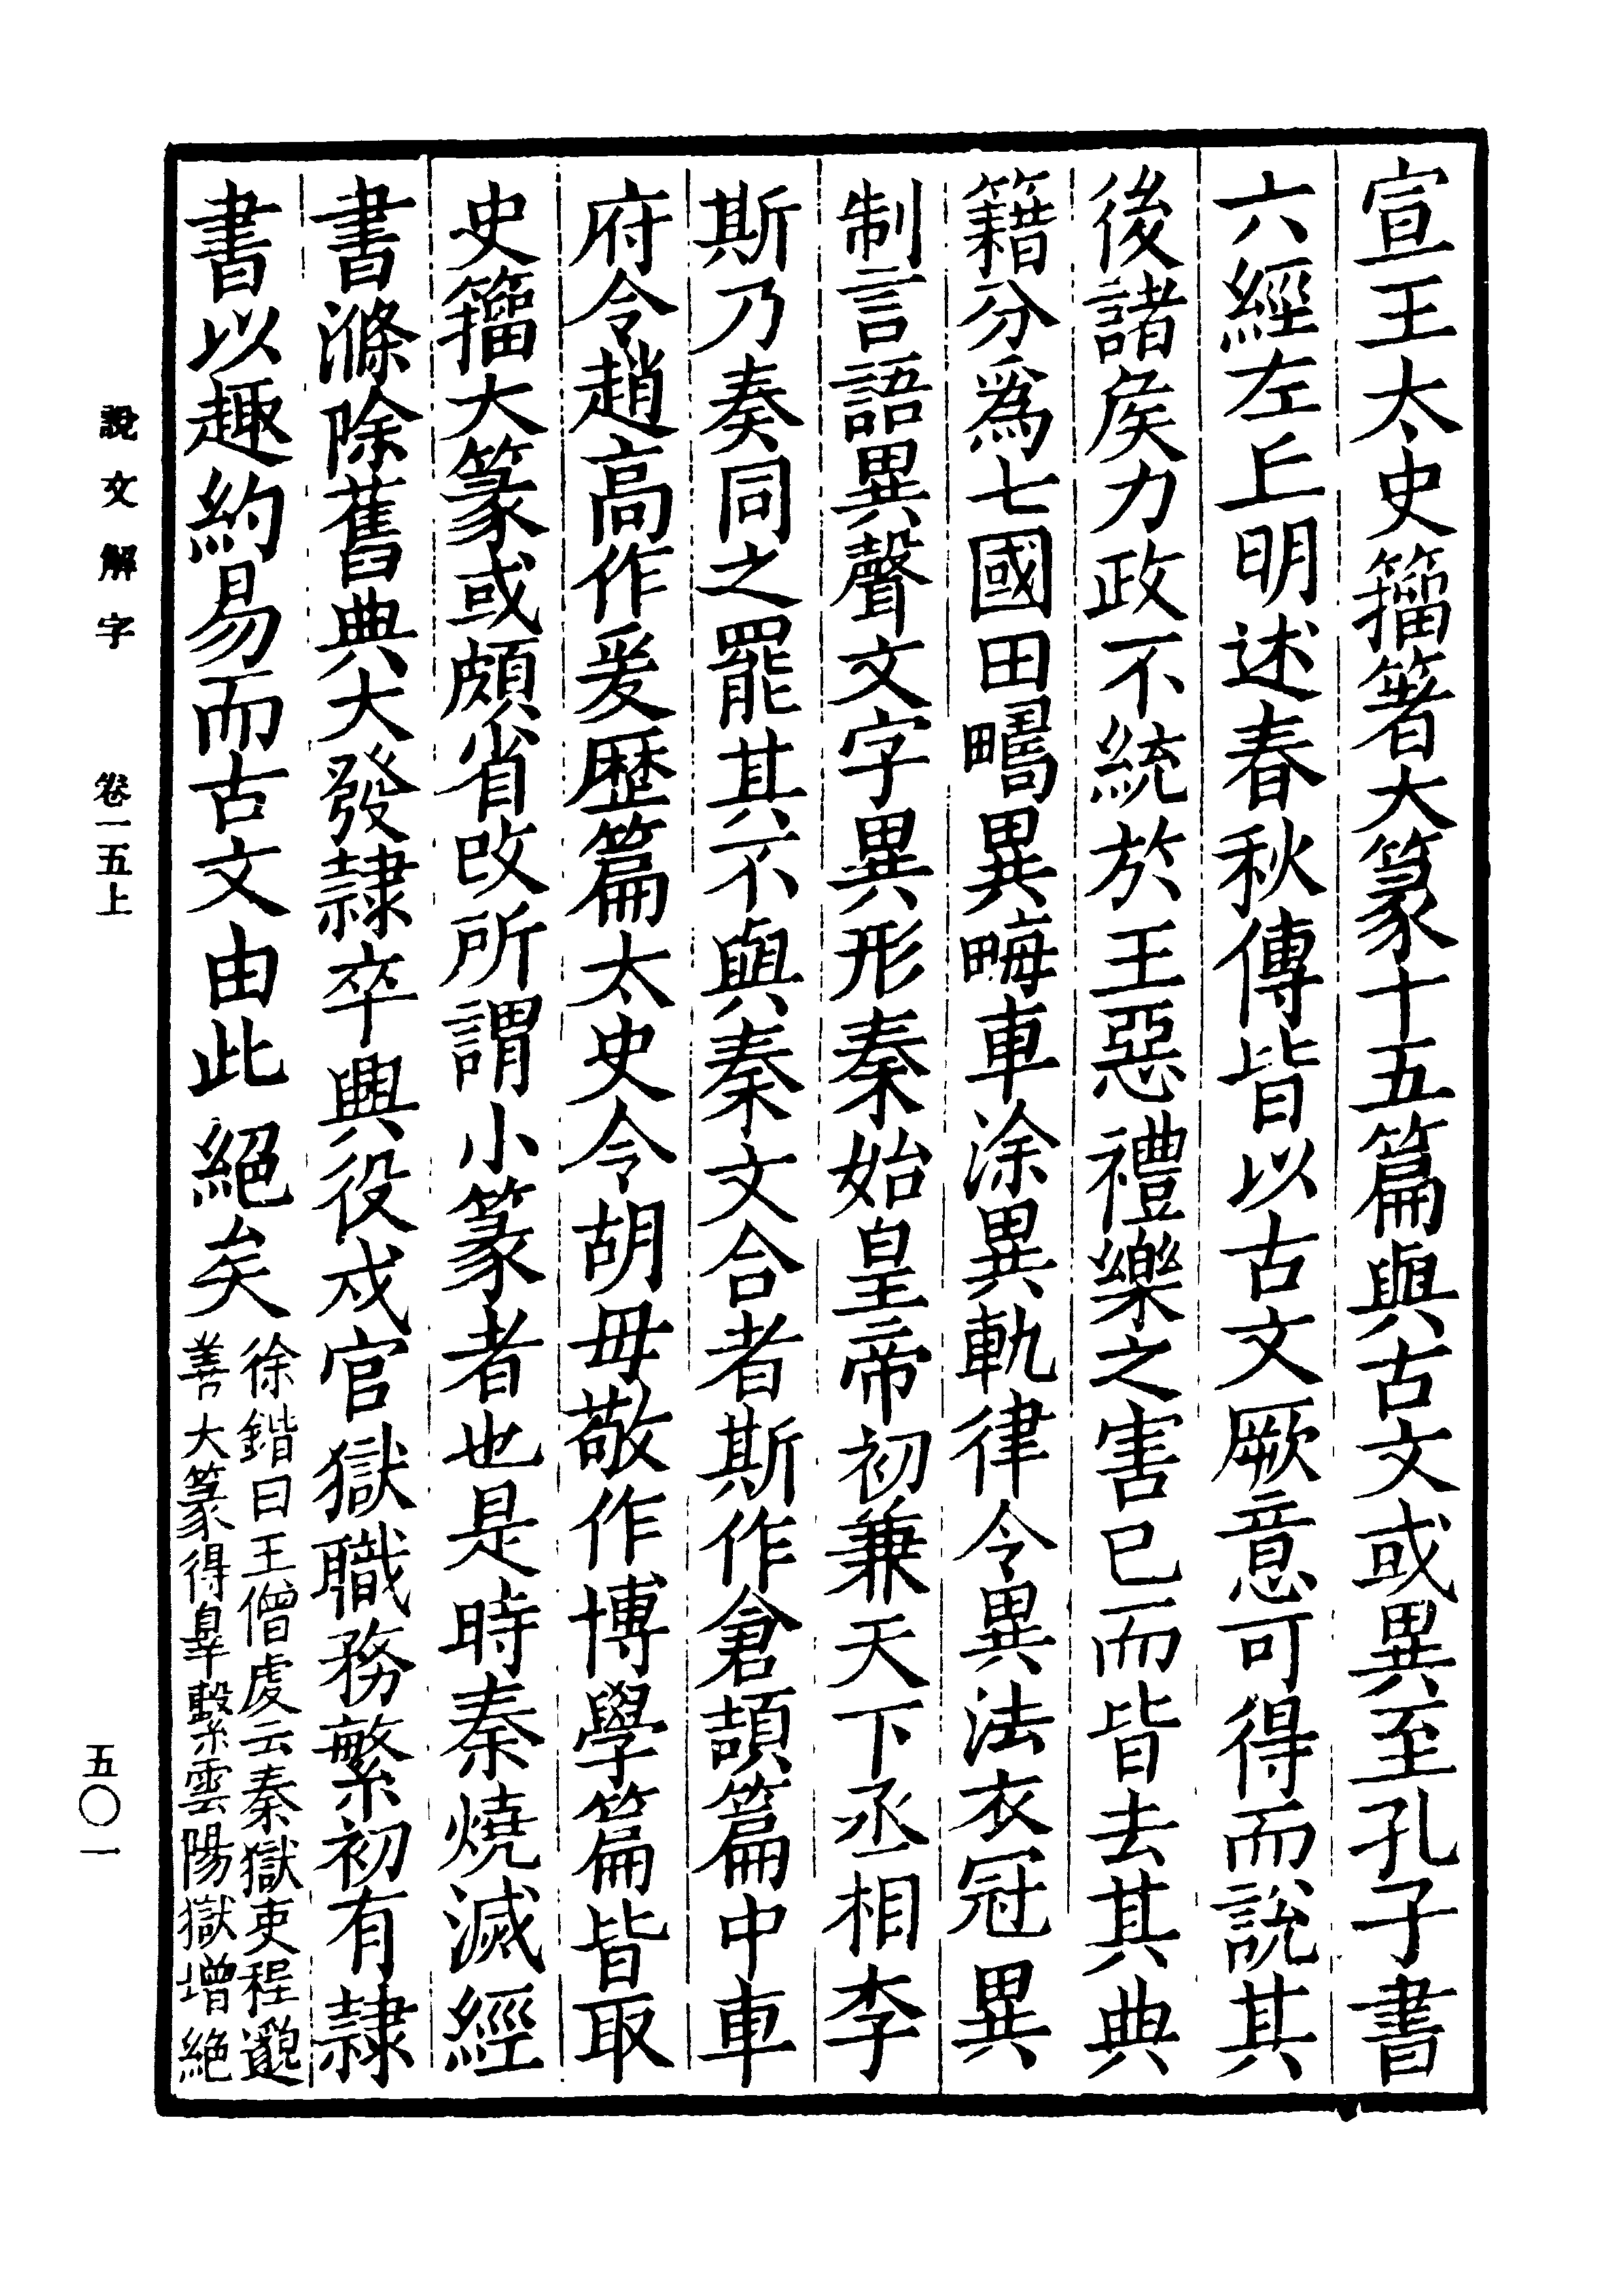 宣王太史籒著大篆十五篇與古文或異至孔子書
六經左丘明述春秋傳皆以古文厥意可得而說其
後諸矦力政不統於王惡禮樂之害已而皆去其典
籍分爲七國田疇異畮車涂異軌律令異法衣冠異
制言語異聲文字異形秦始皇帝初兼天下丞相李
斯乃奏同之罷其不與秦文合者斯作倉頡篇中車
府令趙高作爰歷篇太史令胡毋敬作博學篇皆取
史籒大篆或頗省改所謂小篆者也是時秦燒滅經
書滌除舊典大發隸卒興役戍官獄職務繁初有隸
書以趣約易而古文由此絕矣
徐鍇曰王僧虔云秦獄吏程邈
善大篆得辠繫雲陽獄增絕
說文解字 卷一五上
五〇一